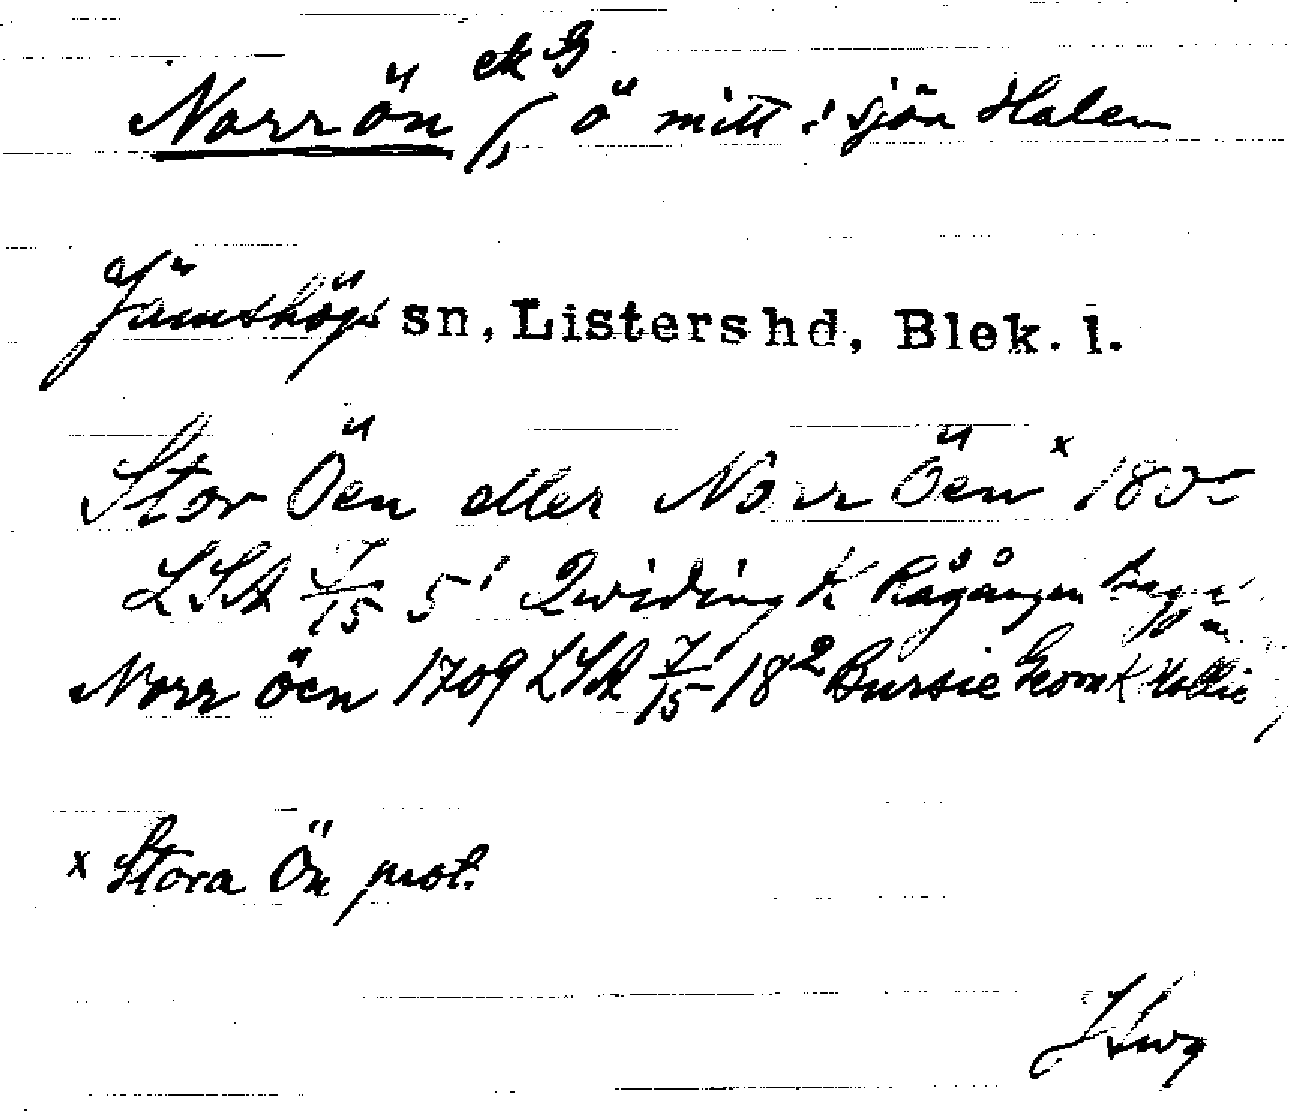 Norrön ek G, ö mitt i sjön Halen
Jämshögs sn, Listers hd, Blek. l.
Stor Öen eller Norr Öen x 1805
LSA J/15 5¹ Qwiding K Rågången
Norr öen 1709 LSA J/15 18² Bursie Geom K
x Stora Ön prot.